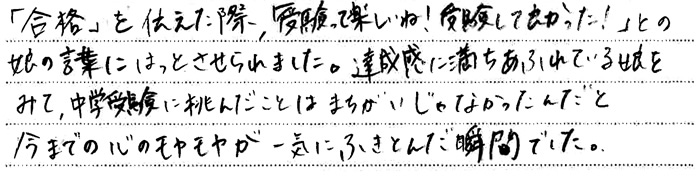 「合格」を伝えた際、「受験って楽しいね!受験して良かった!」との
娘の言葉にはっとさせられました。達成感に満ちあふれている娘を
みて、中学受験に挑んだことはまちがいじゃなかったんだと
今までの心のモヤモヤが一気にふきとんだ瞬間でした。